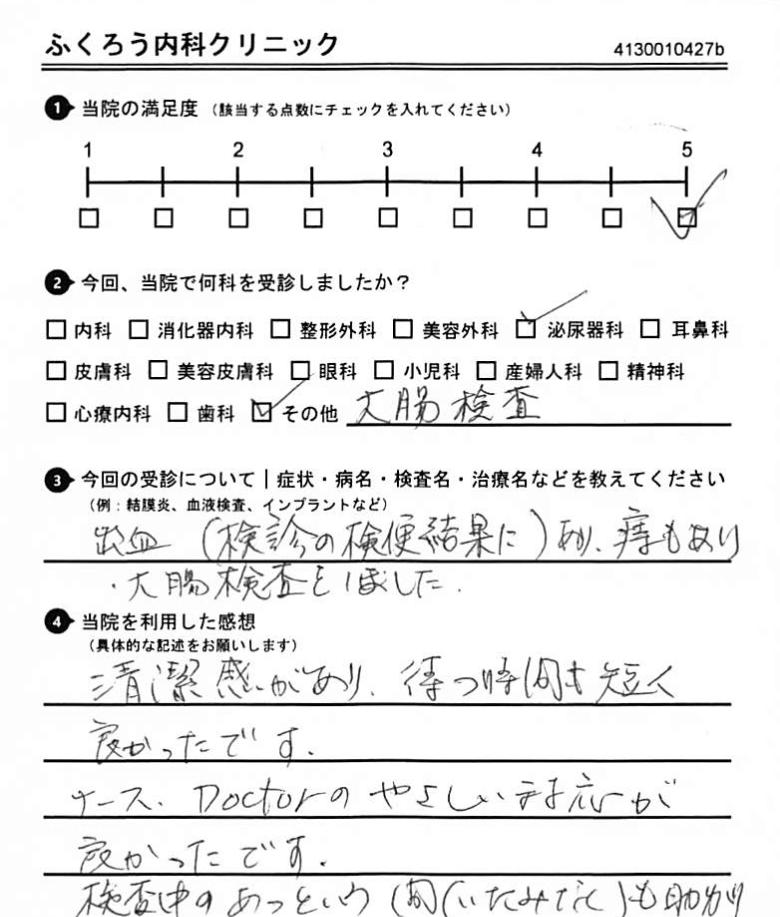 ふくろう内科クリニック 4130010427b
1 当院の満足度 (該当する点数にチェックを入れてください)
1 2 3 4 5
2 今回、当院で何科を受診しましたか?
内科 消化器内科 整形外科 美容外科 泌尿器科 耳鼻科
皮膚科 美容皮膚科 眼科 小児科 産婦人科 精神科
心療内科 歯科 その他 大腸検査
3 今回の受診について | 症状・病名・検査名・治療名などを教えてください
(例:結膜炎、血液検査、インプラントなど)
出血 (検診の検便結果に) あり、痔もあり
・大腸検査を しました.
4 当院を利用した感想
(具体的な記述をお願いします)
清潔感があり、待つ時間も短く
良かったです.
ナース、Doctorのやさしい対応が
良かったです.
検査中のあっという間(いたみなく)も助かり